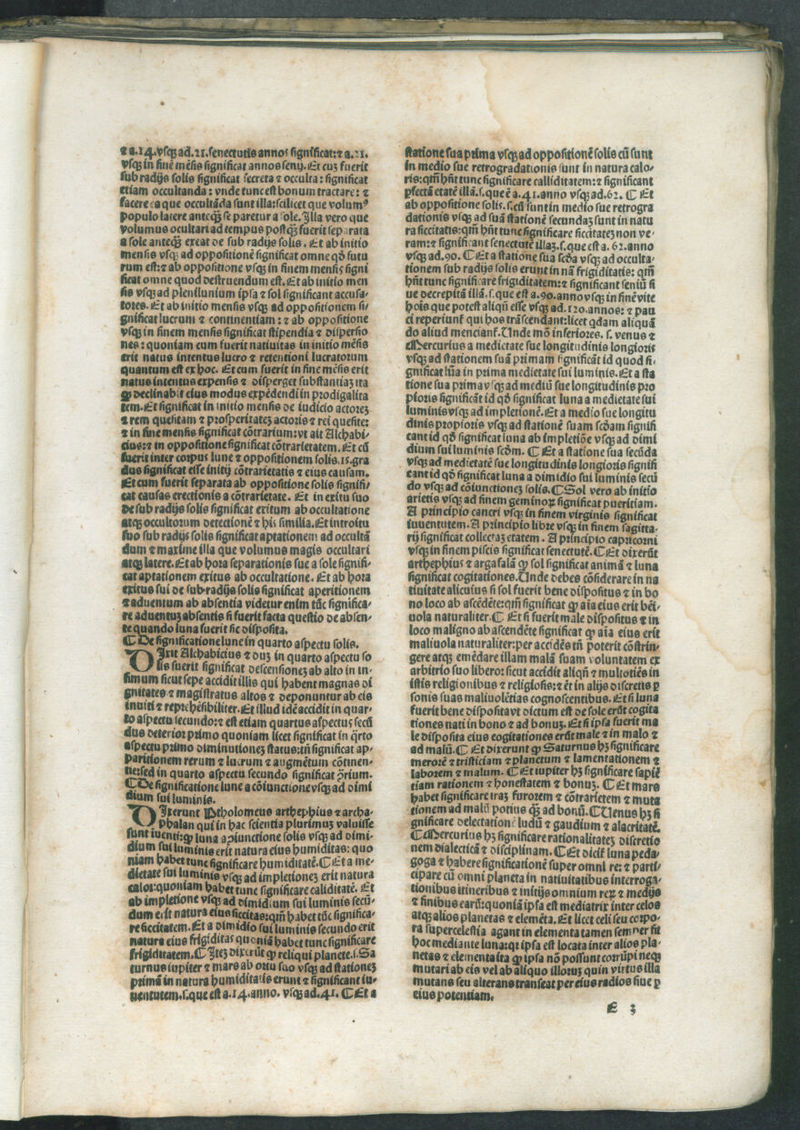 ⁊ a.14.vsq̃ ad.21.senectutis annos significat:⁊ a.21.
vsq̃ in finẽ mẽsis significat annos senij. Et cuz fuerit
sub radijs solis significat secreta ⁊ occulta: significat
etiam occultanda: vnde tunc est bonum tractare: ⁊
facere ea que occultãda sunt illa: scilicet que volum⁹
populo latere anteq̃ separetur a sole. Illa vero que
volumus occultari ad tempus postq̃ fuerit separata
a sole anteq̃ exeat de sub radijs solis. Et ab initio
mensis vsq̃ ad oppositionẽ significat omne qđ futu
rum est: ⁊ ab oppositione vsq̃ in finem mensis signi
ficat omne quod destruendum est. Et ab initio men
sis vsq̃ ad plenilunium ipsa ⁊ sol significant accusa-
tores. Et ab initio mensis vsq̃ ad oppositionem si-
gnificat lucrum ⁊ continentiam: ⁊ ab oppositione
vsq̃ in finem mensis significat stipendia ⁊ dispersio
nes: quoniam cum fuerit natiuitas in initio mẽsis
erit natus intentus lucro ⁊ retentioni lucratorum
quantum est ex hoc. Et cum fuerit in fine mẽsis erit
natus intentus expensis ⁊ disperget substantiaz ita
ꝙ declinabit eius modus expẽdendi in prodigalita
tem. Et significat in initio mensis de iudicio actorez
⁊ rem quesitam ⁊ prosperitatez actoris ⁊ rei quesite:
⁊ in fine mensis significat cõtrarium: vt ait Alchabi-
cius: ⁊ in oppositione significat cõtrarietatem. Et cũ
fuerit inter corpus lune ⁊ oppositionem solis.15.gra
dus significat esse initij cõtrarietatis ⁊ eius causam.
Et cum fuerit separata ab oppositione solis signifi-
cat causas erectionis a cõtrarietate. Et in exitu suo
de sub radijs solis significat exitum ab occultatione
atq̃ occultorum detectionẽ ⁊ his similia. Et introitu
suo sub radijs solis significat aptationem ad occultã
dum ⁊ maxime illa que volumus magis occultari
atq̃ latere. Et ab hora separationis sue a sole signifi-
cat aptationem exitus ab occultatione. Et ab hora
exitus sui de sub radijs solis significat aperitionem
⁊ aduentum ab absentia videtur enim tũc significa-
re aduentuz absentis si fuerit facta questio de absen-
te quando luna fuerit sic disposita.
¶ De significatione lune in quarto aspectu solis.
DIxit Alchabicius ⁊ duz in quarto aspectu so
lis fuerit significat descensionez ab alto in in-
fimum sicut sepe accidit illis qui habent magnas di
gnitates ⁊ magistratus altos ⁊ deponuntur ab eis
inuiti ⁊ reprehẽsibiliter. Et illud idẽ accidit in quar-
to aspectu secundo: ⁊ est etiam quartus aspectus secũ
dus deterior primo quoniam licet significat in q̃rto
aspectu primo diminutionez status: tñ significat ap-
paritionem rerum ⁊ lucrum ⁊ augmẽtum cõtinen-
tie: sed in quarto aspectu secundo significat ꝯrium.
¶ De significatione lune a cõiunctione vsq̃ ad dimi
dium sui luminis.
DIxerunt Ptholomeus arthephius ⁊ archa-
phalan qui in hac scientia plurimuz valuisse
sunt iuenti: ꝙ luna a ꝯiunctione solis vsq̃ ad dimi-
dium sui luminis erit natura eius humiditas: quo
niam habet tunc significare humiditatẽ. ¶ Et a me-
dietate sui luminis vsq̃ ad impletionez erit natura
calor: quoniam habet tunc significare caliditatẽ. Et
ab impletione vsq̃ ad dimidium sui luminis secũ-
dum erit natura eius siccitas: qm̃ habet tũc significa-
re siccitatem. Et a dimidio sui luminis secundo erit
natura eius frigiditas quoniã habet tunc significare
frigiditatem. ¶ Itez dixerũt ꝙ reliqui planete.s. Sa
turnus iupiter ⁊ mars ab ortu suo vsq̃ ad stationez
primã in natura humiditatis erunt ⁊ significant iu-
uentutem.s.que est a.14.anno. vsq̃ ad.41. ¶ Et a
statione sua prima vsq̃ ad oppositionẽ solis cũ sunt
in medio sue retrogradationis sunt in natura calo-
ris: qm̃ hñt tunc significare calliditatem: ⁊ significant
ꝑfectã etatẽ illã.s.que ẽ a.41.anno vsq̃ ad.62. ¶ Et
ab oppositione solis.s.cũ sunt in medio sue retrogra
dationis vsq̃ ad suã stationẽ secundaz sunt in natu
ra siccitatis: qm̃ hñt tunc significare siccitatez non ve-
ram: ⁊ significant senectutẽ illaz.s.que est a.62.anno
vsq̃ ad.90. ¶ Et a statione sua scđa vsq̃ ad occulta-
tionem sub radijs solis erunt in nã frigiditatis: qm̃
hñt tunc significare frigiditatem: ⁊ significant seniũ si
ue decrepitã illã.s.que est a.90.anno vsq̃ in finẽ vite
hois que potest aliqñ esse vsq̃ ad.120.annos: ⁊ pau
ci reperiunt̃ qui hos trãscendant: licet qdam aliquã
do aliud menciant̃. Unde mõ inferiores.s. venus ⁊
Mercurius a medietate sue longitudinis longioris
vsq̃ ad stationem suã primam significãt id quod si-
gnificat lũa in prima medietate sui luminis. Et a sta
tione sua prima vsq̃ ad mediũ sue longitudinis pro
pioris significãt id qđ significat luna a medietate sui
luminis vsq̃ ad impletionẽ. Et a medio sue longitu
dinis propioris vsq̃ ad stationẽ suam scđam signifi
cant id qđ significat luna ab impletiõe vsq̃ ad dimi
dium sui luminis scđm. ¶ Et a statione sua secũda
vsq̃ ad medietatẽ sue longitudinis longioris signifi
cant id qđ significat luna a dimidio sui luminis secũ
do vsq̃ ad cõiunctionez solis. ¶ Sol vero ab initio
arietis vsq̃ ad finem geminoꝝ significat pueritiam.
A principio cancri vsq̃ in finem virginis significat
iuuentutem. A principio libre vsq̃ in finem sagitta-
rij significat collectaz etatem. A principio capricorni
vsq̃ in finem piscis significat senectutẽ. ¶ Et dixerũt
arthephius ⁊ argafalã ꝙ sol significat animã ⁊ luna
significat cogitationes. Unde debes cõsiderare in na
tiuitate alicuius si sol fuerit bene dispositus ⁊ in bo
no loco ab ascẽdẽte: qm̃ significat ꝙ aia eius erit bẽi-
uola naturaliter. ¶ Et si fuerit male dispositus ⁊ in
loco maligno ab ascendẽte significat ꝙ aia eius erit
maliuola naturaliter: per accidẽs tñ poterit cõstrin-
gere atq̃ emẽdare illam malã suam voluntatem ex
arbitrio suo libero: sicut accidit aliqñ ⁊ multotiẽs in
istis religionibus ⁊ religiosis: ⁊ ẽt in alijs discretis ꝑ
sonis suas maliuolẽtias cognoscentibus. Et si luna
fuerit bene disposita vt dictum est de sole erũt cogita
tiones nati in bono ⁊ ad bonuz. Et si ipsa fuerit ma
le disposita eius cogitationes erũt male ⁊ in malo ⁊
ad malũ. ¶ Et dixerunt ꝙ Saturnus hz significare
merorẽ ⁊ tristiciam ⁊ planctum ⁊ lamentationem ⁊
laborem ⁊ malum. ¶ Et iupiter hz significare sapiẽ
tiam rationem ⁊ honestatem ⁊ bonuz. ¶ Et mars
habet significare iraz furorem ⁊ cõtrarietem ⁊ muta
tionem ad malũ potius q̃ ad bonũ. ¶ Uenus hz si
gnificare delectationẽ ludũ ⁊ gaudium ⁊ alacritatẽ.
¶ Mercurius hz significare rationalitatez discretio
nem dialecticã ⁊ disciplinam. ¶ Et dicit̃ luna peda-
goga ⁊ habere significationẽ super omni re: ⁊ parti-
cipare cũ omni planeta in natiuitatibus interroga-
tionibus itineribus ⁊ initijs omnium reꝝ ⁊ medijs
⁊ finibus earũ: quoniã ipsa est mediatrix inter celos
atq̃ alios planetas ⁊ elemẽta. Et licet celi seu corpo-
ra supercelestia agant in elementa tamen semper fit
hoc mediante luna: qz ipsa est locata inter alios pla-
netas ⁊ elementa ita ꝙ ipsa nõ possunt corrũpi neq̃
mutari ab eis vel ab aliquo illorũz quin virtus illa
mutans seu alterans transeat per eius radios siue ꝑ
eius potentiam.
E 3